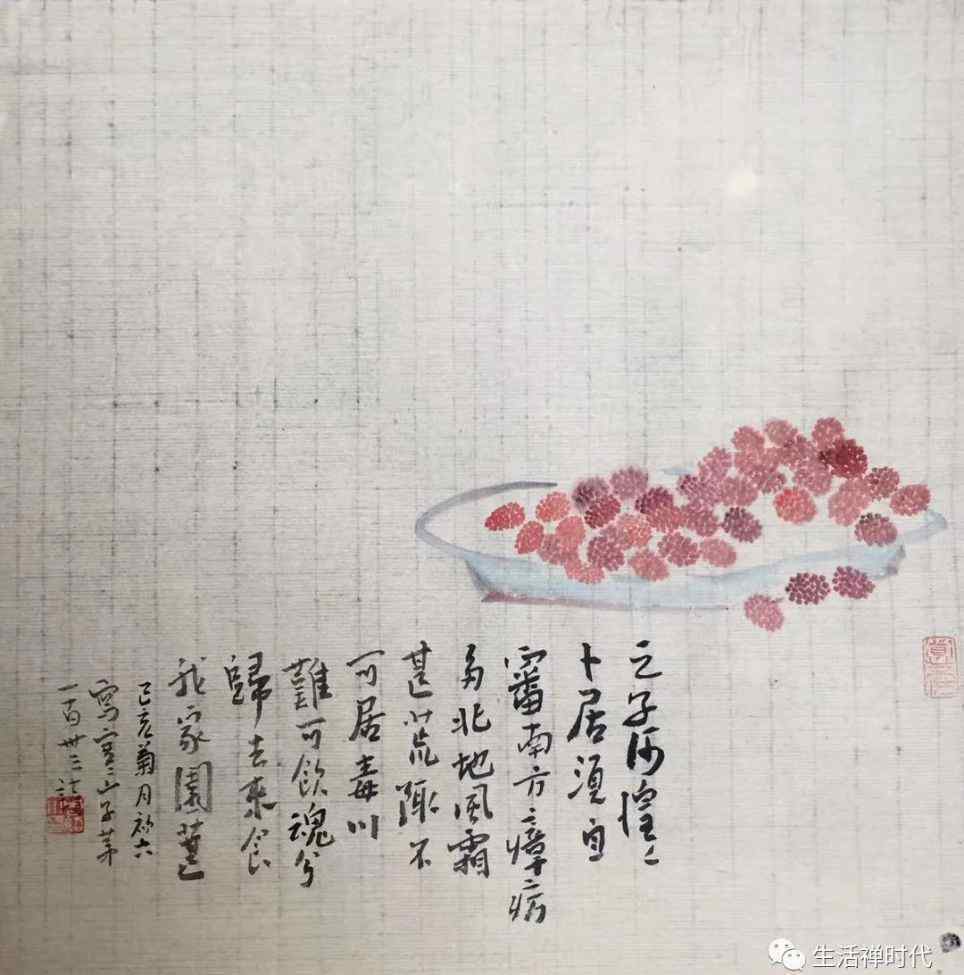 之子何惶々
卜居須自
審南方瘴病
多北地風霜
甚荒陬不
可居毒川
難可飲魂兮
歸去來食
我家園葚
己亥菊月初六
寫寒山子第
一百卅二
生活禅时代